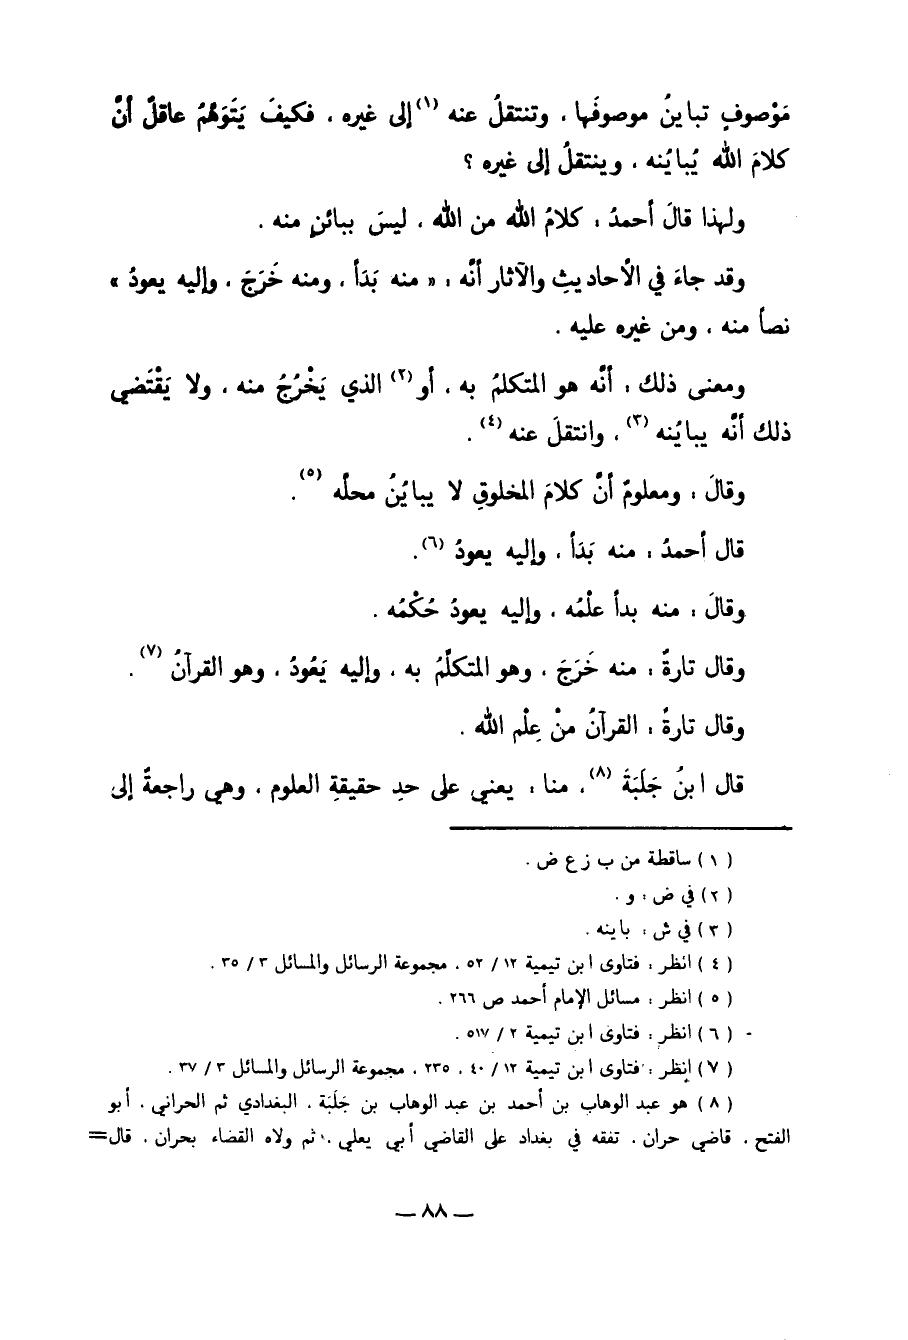 مَوْصوفٍ تباينُ موصوفَها ، وتنتقلُ عنه (١) إلى غيره ، فكيفَ يَتَوَهَّمُ عاقلٌ أنَّ
كلامَ الله يُباينُه ، وينتقلُ إلى غيره ؟
ولهذا قالَ أحمدُ : كلامُ الله من الله ، ليسَ ببائنٍ منه .
وقد جاءَ في الأحاديثِ والآثار أنَّه : « منه بَدَأ ، ومنه خَرَجَ ، وإليه يعودُ »
نصاً منه ، ومن غيره عليه .
ومعنى ذلك : أنَّه هو المتكلمُ به ، أو (٢) الذي يَخْرُجُ منه ، ولا يَقْتَضي
ذلك أنَّه يباينُه (٣) ، وانتقلَ عنه (٤) .
وقالَ : ومعلومٌ أنَّ كلامَ المخلوقِ لا يباينُ محلَّه (٥) .
قال أحمدُ : منه بَدَأ ، وإليه يعودُ (٦) .
وقالَ : منه بدأ علْمُه ، وإليه يعودُ حُكْمُه .
وقال تارةً : منه خَرَجَ ، وهو المتكلِّمُ به ، وإليه يَعُودُ ، وهو القرآنُ (٧) .
وقال تارةً : القرآنُ منْ عِلْم الله .
قال ابنُ جَلَبَةَ (٨) ، منا : يعني على حدِ حقيقةِ العلوم ، وهي راجعةٌ إلى
( ١ ) ساقطة من ب ز ع ض .
( ٢ ) في ض : و .
( ٣ ) في ش : باينه .
( ٤ ) انظر : فتاوى ابن تيمية ١٢ / ٥٢ ، مجموعة الرسائل والمسائل ٣ / ٣٥ .
( ٥ ) انظر : مسائل الإمام أحمد ص ٢٦٦ .
( ٦ ) انظر : فتاوى ابن تيمية ٢ / ٥١٧ .
( ٧ ) انظر : فتاوى ابن تيمية ١٢ / ٤٠ ، ٢٣٥ ، مجموعة الرسائل والمسائل ٣ / ٣٧ .
( ٨ ) هو عبد الوهاب بن أحمد بن عبد الوهاب بن جَلَبَة ، البغدادي ثم الحراني ، أبو
الفتح ، قاضي حران . تفقه في بغداد على القاضي أبي يعلى ، ثم ولاه القضاء بحران . قال=
— ٨٨ —